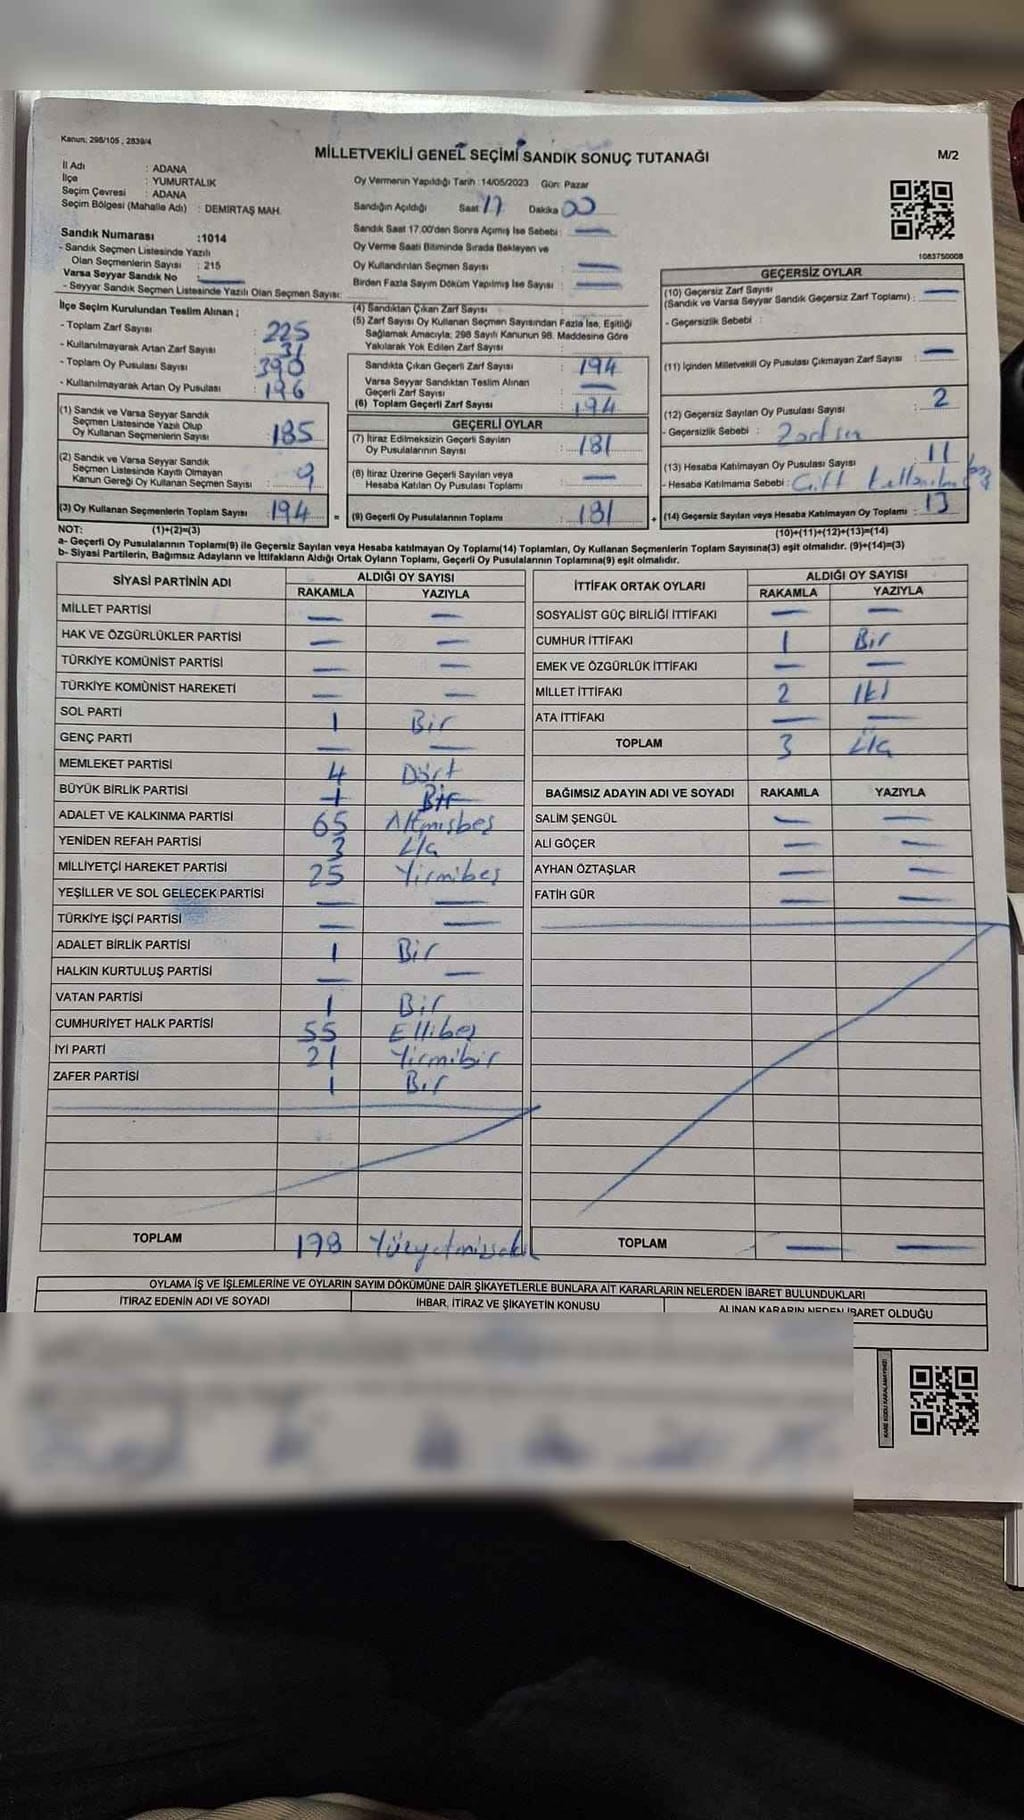 Kanun: 298/105 , 2839/4
MİLLETVEKİLİ GENEL SEÇİMİ SANDIK SONUÇ TUTANAĞI
M/2
İl Adı : ADANA
İlçe : YUMURTALIK
Seçim Çevresi : ADANA
Seçim Bölgesi (Mahalle Adı) : DEMİRTAŞ MAH.
Sandık Numarası :1014
- Sandık Seçmen Listesinde Yazılı
Olan Seçmenlerin Sayısı : 215
Varsa Seyyar Sandık No —
- Seyyar Sandık Seçmen Listesinde Yazılı Olan Seçmen Sayısı:
Oy Vermenin Yapıldığı Tarih : 14/05/2023 Gün: Pazar
Sandığın Açıldığı Saat 17 Dakika 00
Sandık Saat 17.00'den Sonra Açımış İse Sebebi : —
Oy Verme Saati Bitiminde Sırada Bekleyen ve
Oy Kullandırılan Seçmen Sayısı : —
Birden Fazla Sayım Döküm Yapılmış İse Sayısı : —
1083750008
İlçe Seçim Kurulundan Teslim Alınan ;
- Toplam Zarf Sayısı : 225
- Kullanılmayarak Artan Zarf Sayısı : 31
- Toplam Oy Pusulası Sayısı : 390
- Kullanılmayarak Artan Oy Pusulası : 196
(1) Sandık ve Varsa Seyyar Sandık
Seçmen Listesinde Yazılı Olup
Oy Kullanan Seçmenlerin Sayısı : 185
(2) Sandık ve Varsa Seyyar Sandık
Seçmen Listesinde Kayıtlı Olmayan
Kanun Gereği Oy Kullanan Seçmen Sayısı : 9
(3) Oy Kullanan Seçmenlerin Toplam Sayısı : 194 =
(4) Sandıktan Çıkan Zarf Sayısı :
(5) Zarf Sayısı Oy Kullanan Seçmen Sayısından Fazla İse, Eşitliği
Sağlamak Amacıyla; 298 Sayılı Kanunun 98. Maddesine Göre
Yakılarak Yok Edilen Zarf Sayısı :
Sandıkta Çıkan Geçerli Zarf Sayısı : 194
Varsa Seyyar Sandıktan Teslim Alınan
Geçerli Zarf Sayısı : —
(6) Toplam Geçerli Zarf Sayısı : 194
GEÇERLİ OYLAR
(7) İtiraz Edilmeksizin Geçerli Sayılan
Oy Pusulalarının Sayısı : 181
(8) İtiraz Üzerine Geçerli Sayılan veya
Hesaba Katılan Oy Pusulası Toplamı : —
(9) Geçerli Oy Pusulalarının Toplamı : 181 +
GEÇERSİZ OYLAR
(10) Geçersiz Zarf Sayısı
(Sandık ve Varsa Seyyar Sandık Geçersiz Zarf Toplamı) : —
- Geçersizlik Sebebi :
(11) İçinden Milletvekili Oy Pusulası Çıkmayan Zarf Sayısı : —
(12) Geçersiz Sayılan Oy Pusulası Sayısı : 2
- Geçersizlik Sebebi :
(13) Hesaba Katılmayan Oy Pusulası Sayısı : 11
- Hesaba Katılmama Sebebi :
(14) Geçersiz Sayılan veya Hesaba Katılmayan Oy Toplamı : 13
NOT: (1)+(2)=(3) (10)+(11)+(12)+(13)=(14)
a- Geçerli Oy Pusulalarının Toplamı(9) ile Geçersiz Sayılan veya Hesaba katılmayan Oy Toplamı(14) Toplamları, Oy Kullanan Seçmenlerin Toplam Sayısına(3) eşit olmalıdır. (9)+(14)=(3)
b- Siyasi Partilerin, Bağımsız Adayların ve İttifakların Aldığı Ortak Oyların Toplamı, Geçerli Oy Pusulalarının Toplamına(9) eşit olmalıdır.
SİYASİ PARTİNİN ADI ALDIĞI OY SAYISI
RAKAMLA YAZIYLA
MİLLET PARTİSİ — —
HAK VE ÖZGÜRLÜKLER PARTİSİ — —
TÜRKİYE KOMÜNİST PARTİSİ — —
TÜRKİYE KOMÜNİST HAREKETİ — —
SOL PARTİ 1 Bir
GENÇ PARTİ — —
MEMLEKET PARTİSİ 4 Dört
BÜYÜK BİRLİK PARTİSİ 1 Bir
ADALET VE KALKINMA PARTİSİ 65 Altmışbeş
YENİDEN REFAH PARTİSİ 3 Üç
MİLLİYETÇİ HAREKET PARTİSİ 25 Yirmibeş
YEŞİLLER VE SOL GELECEK PARTİSİ — —
TÜRKİYE İŞÇİ PARTİSİ — —
ADALET BİRLİK PARTİSİ 1 Bir
HALKIN KURTULUŞ PARTİSİ — —
VATAN PARTİSİ 1 Bir
CUMHURİYET HALK PARTİSİ 55 Ellibeş
İYİ PARTİ 21 Yirmibir
ZAFER PARTİSİ 1 Bir
TOPLAM 178
İTTİFAK ORTAK OYLARI ALDIĞI OY SAYISI
RAKAMLA YAZIYLA
SOSYALİST GÜÇ BİRLİĞİ İTTİFAKI — —
CUMHUR İTTİFAKI 1 Bir
EMEK VE ÖZGÜRLÜK İTTİFAKI — —
MİLLET İTTİFAKI 2 İki
ATA İTTİFAKI — —
TOPLAM 3 Üç
BAĞIMSIZ ADAYIN ADI VE SOYADI RAKAMLA YAZIYLA
SALİM ŞENGÜL — —
ALİ GÖÇER — —
AYHAN ÖZTAŞLAR — —
FATİH GÜR — —
TOPLAM — —
OYLAMA İŞ VE İŞLEMLERİNE VE OYLARIN SAYIM DÖKÜMÜNE DAİR ŞİKAYETLERLE BUNLARA AİT KARARLARIN NELERDEN İBARET BULUNDUKLARI
İTİRAZ EDENİN ADI VE SOYADI İHBAR, İTİRAZ VE ŞİKAYETİN KONUSU ALINAN KARARIN NEDEN İBARET OLDUĞU